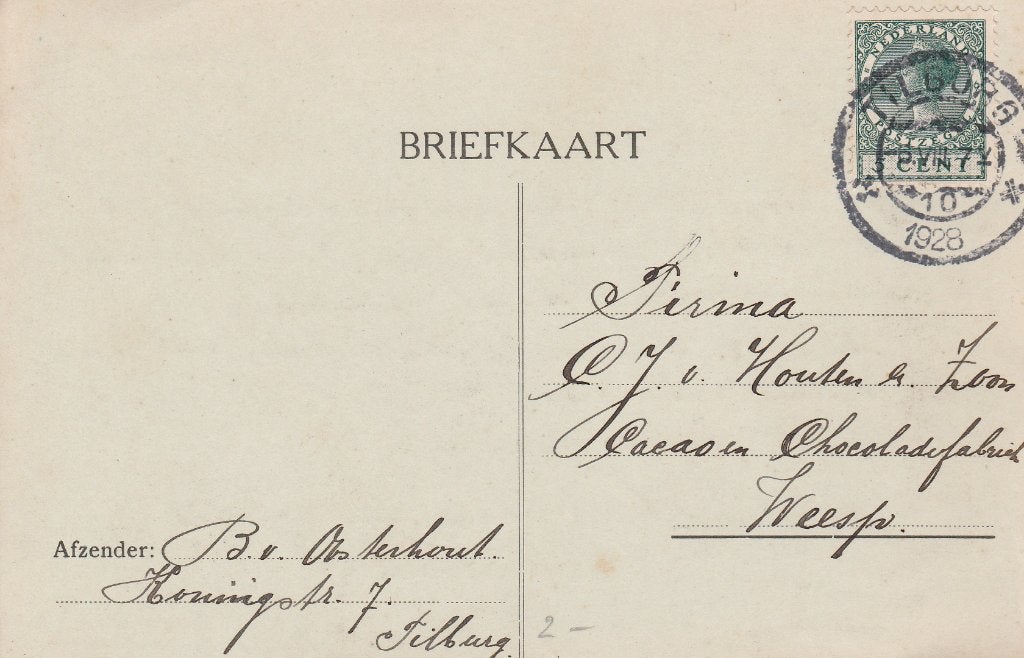 NEDERLAND
POSTZEGEL
CENT
TILBURG
10
1928
BRIEFKAART
Firma
C. J. v. Houten & Zoon
Cacao en Chocoladefabriek
Weesp.
Afzender: B. v. Oosterhout.
Koningstr. 7.
Tilburg.
2 –